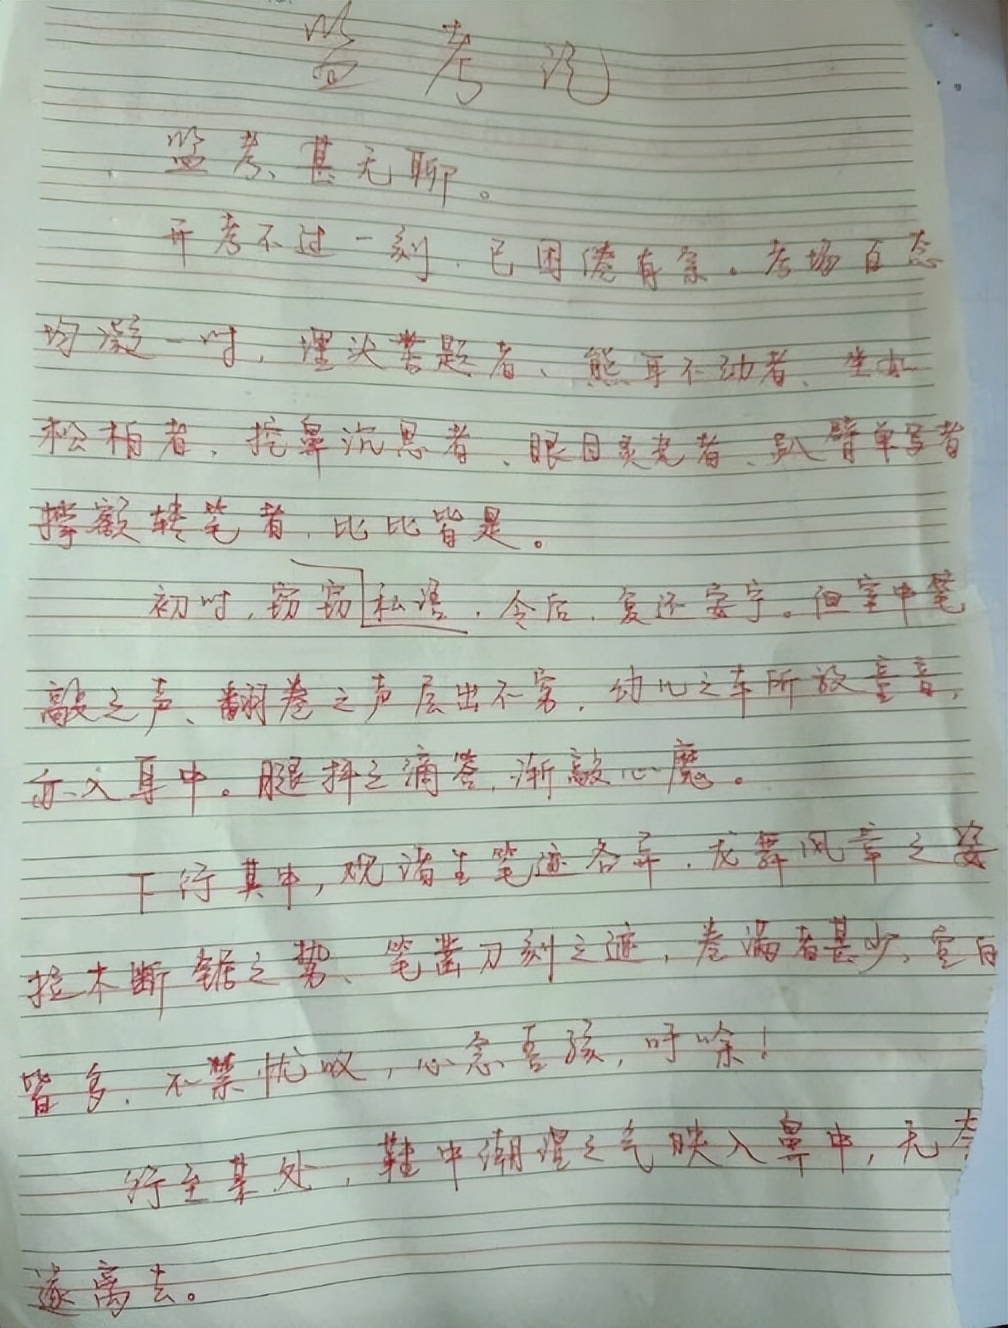 监考记
监考、甚无聊。
开考不过一刻，已困倦有余。考场百态
均凝一时，埋头苦题者、熊耳不动者、坐如
松柏者、挖鼻沉思者、眼目灵光者、趴臂单写者
撑额转笔者，比比皆是。
初时，窃窃私语，令后，复还安宁。但室中笔
敲之声、翻卷之声层出不穷，幼儿之车所放童音，
亦入耳中。腿抖之滴答，渐敲心魔。
下行其中，观诸生笔迹各异，龙舞风章之姿
拉木断锯之势、笔凿刀刻之迹，卷满者甚少，空白
皆多，不禁忧叹，心念吾孩，吁唏！
行至某处，鞋中潮湿之气映入鼻中，无奈
遂离去。